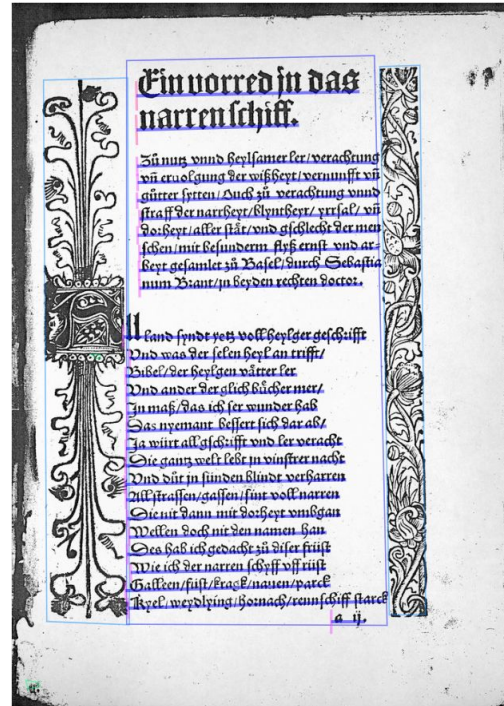 Ein vorred jn das
narren schiff.
Zů nutz vnnd heylsamer ler / verachtung
vñ eruolgung der wißheyt / vernunfft vñ
gůtter sytten / Ouch zů verachtung vnnd
straff der narrheyt / blyntheyt / yrrsal / vñ
dorheyt / aller ståt / vnd gschlecht der men
schen / mit besunderm flyß ernst vnd ar-
beyt gesamlet zů Basel / durch Sebastia
num Brant / jn beyden rechten doctor.
All land syndt yetz voll heylger geschrifft
Vnd was der selen heyl an trifft /
Bibel / der heylgen våtter ler
Vnd ander der glich bůcher mer /
Jn maß / das ich ser wunder hab
Das nyemant bessert sich dar ab /
Ja würt all gschrifft vnd ler veracht
Die gantz welt lebt in vinstrer nacht
Vnd důt in sünden blindt verharren
All strassen / gassen / sint voll narren
Die nit dann mit dorheyt vmbgan
Wellen doch nit den namen han
Des hab ich gedacht zů diser früst
Wie ich der narren schyff vff rüst
Galleen / füst / kragk / nauen / parck
Kyel / weydlyng / hornach / rennschiff starck
a ij.